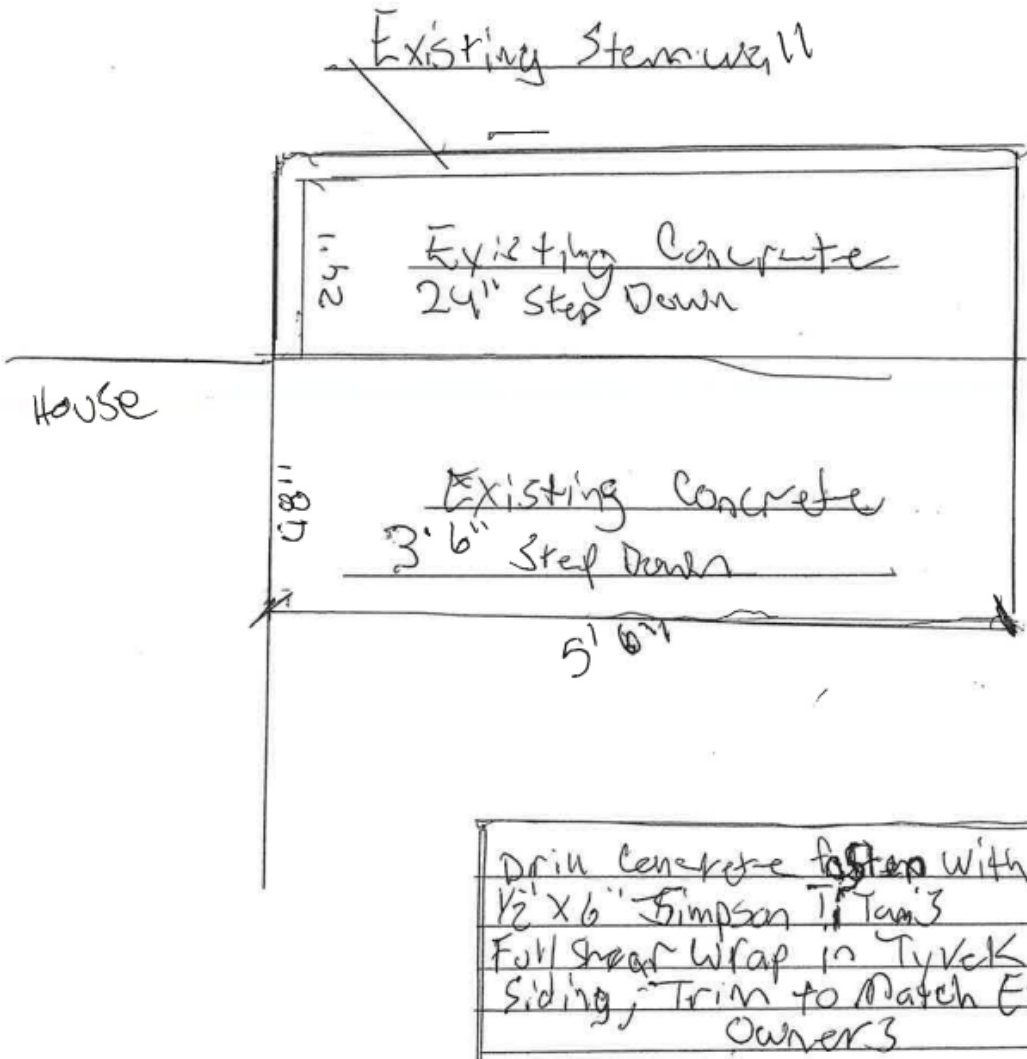 Existing Stemwall
24"
Existing Concrete
24" Step Down
House
48"
Existing Concrete
3' 6" Step Down
5' 6"
Drill Concrete fasten with
1/2" X 6" Simpson Titan's
Full Shear Wrap in Tyvek
Siding, Trim to Match E
Owners